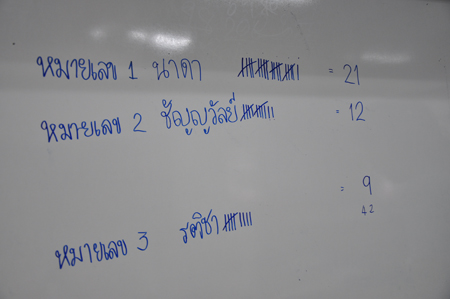 หมายเลข 1 นาดา = 21
หมายเลข 2 ชัญญวัลย์ = 12
= 9
42
หมายเลข 3 รติชา